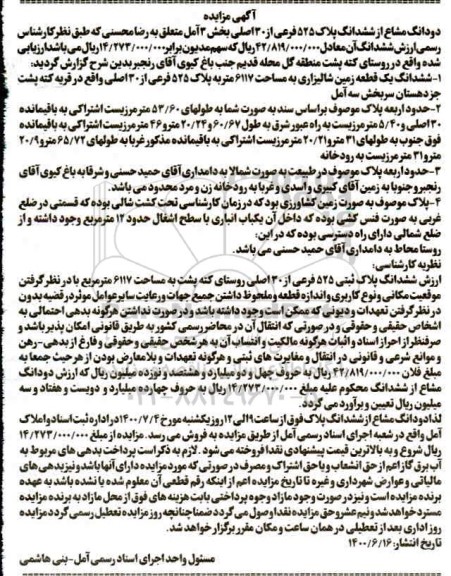 آگهی مزایده
دودانگ مشاع از ششدانگ پلاک ۵۲۵ فرعی از ۳۰ اصلی بخش ۳ آمل متعلق به رضا محسنی که طبق نظر کارشناس
رسمی ارزش ششدانگ آن معادل ۴۲/۸۱۹/۰۰۰/۰۰۰ ریال که سهم مدیون برابر ۱۴/۲۷۳/۰۰۰/۰۰۰ ریال می باشد ارزیابی
شده واقع در روستای کته پشت منطقه گل محله قدیم جنب باغ کیوی آقای رنجبر بدین شرح گزارش گردید:
۱-ششدانگ یک قطعه زمین شالیزاری به مساحت ۶۱۱۷ متر به پلاک ۵۲۵ فرعی از ۳۰ اصلی واقع در قریه کته پشت
جز دهستان سر بخش سه آمل
۲-حدود اربعه پلاک موصوف بر اساس سند به صورت شما به طولهای ۵۳/۶۰ متر مرزیست اشتراکی به باقیمانده
۳۰ اصلی و ۵/۴۰ متر مرزیست به راه عبور شرق به طول ۶۰/۶۷ و ۲۰/۲۴ متر و ۴۶ متر مرزیست اشتراکی به باقیمانده
فوق جنوب به طولهای ۳۱ متر و ۲۰/۲۱ متر مرزیست اشتراکی به باقیمانده مذکور غربا به طولهای ۶۵/۷۲ متر و ۲۰/۹
متر و ۳۱ متر مرزیست به رودخانه
۳-حدود اربعه پلاک موصوف در طبیعت به صورت شمالا به دامداری آقای حمید حسنی و شرقا به باغ کیوی آقای
رنجبر و جنوبا به زمین آقای کبیری و اسدی و غربا به رودخانه زن و مرد محدود می باشد
۴-پلاک موصوف به صورت زمین کشاورزی بود که در زمان کارشناسی تحت کشت شالی بوده که قسمتی در ضلع
غربی به صورت فنس کشی بوده که داخل آن یکباب انباری با سطح اشغال حدود ۱۲ متر مربع وجود داشته و از
ضلع شمالی دارای راه دسترسی بوده که در این:
روستا محاط به دامداری آقای حمید حسنی می باشد.
نظریه کارشناسی:
ارزش ششدانگ پلاک ثبتی ۵۲۵ فرعی از ۳۰ اصلی روستای کته پشت به مساحت ۶۱۱۷ متر مربع با در نظر گرفتن
موقعیت مکانی و نوع کاربری و اندازه قطعه و ملحوظ داشتن جمیع جهات و رعایت سایر عوامل موثر در قضیه بدون
در نظر گرفتن تعهدات و دیونی که ممکن است وجود داشته باشد و در صورت نداشتن هرگونه بدهی احتمالی به
اشخاص حقیقی و حقوقی و در صورتی که انتقال آن در محاضر رسمی کشور به طریق قانونی امکان پذیر باشد و
صرفنظر از احراز اسناد و اثبات هرگونه مالکیت و انتساب آن به هر شخص حقیقی و حقوقی و فارغ از بدهی-رهن
و موانع شرعی و قانونی در انتقال و مغایرت های ثبتی و هرگونه تعهدات و بلامعارض بودن از هر حیث جمعا به
مبلغ فلان ۴۲/۸۱۹/۰۰۰/۰۰۰ ریال به حروف چهل و دو میلیارد و هشتصد و نوزده میلیون ریال که ارزش دو دانگ
مشاع از ششدانگ محکوم علیه مبلغ ۱۴/۲۷۳/۰۰۰/۰۰۰ ریال به حروف چهارده میلیارد و دویست و هفتاد و سه
میلیون ریال تعیین و برآورد می گردد.
لذا دودانگ مشاع از ششدانگ پلاک فوق از ساعت ۹ الی ۱۲ روز یکشنبه مورخ ۱۴۰۰/۷/۴ در اداره ثبت اسناد و املاک
آمل واقع در شعبه اجرای اسناد رسمی آمل از طریق مزایده به فروش می رسد. مزایده از مبلغ ۱۴/۲۷۳/۰۰۰/۰۰۰
ریال شروع و به بالاترین قیمت پیشنهادی نقدا فروخته می شود. لازم به ذکر است پرداخت بدهی های مربوط به
آب برق گاز اعم از حق انشعاب و یا حق اشتراک و مصرف در صورتی که مورد مزایده دارای آنها باشد و نیز بدهی های
مالیاتی و عوارض شهرداری و غیره تا تاریخ مزایده اعم از اینکه رقم قطعی آن معلوم شده یا نشده باشد به عهده
برنده مزایده است و نیز در صورت وجود مازاد وجوه پرداختی بابت هزینه های فوق از محل مازاد به برنده مزایده
مسترد خواهد شد و نیم عشر و حق مزایده نقدا وصول می گردد ضمنا چنانچه روز مزایده تعطیل رسمی گردد مزایده
روز اداری بعد از تعطیلی در همان ساعت و مکان مقرر برگزار خواهد شد.
تاریخ انتشار: ۱۴۰۰/۶/۱۶
مسئول واحد اجرای اسناد رسمی آمل-بنی هاشمی